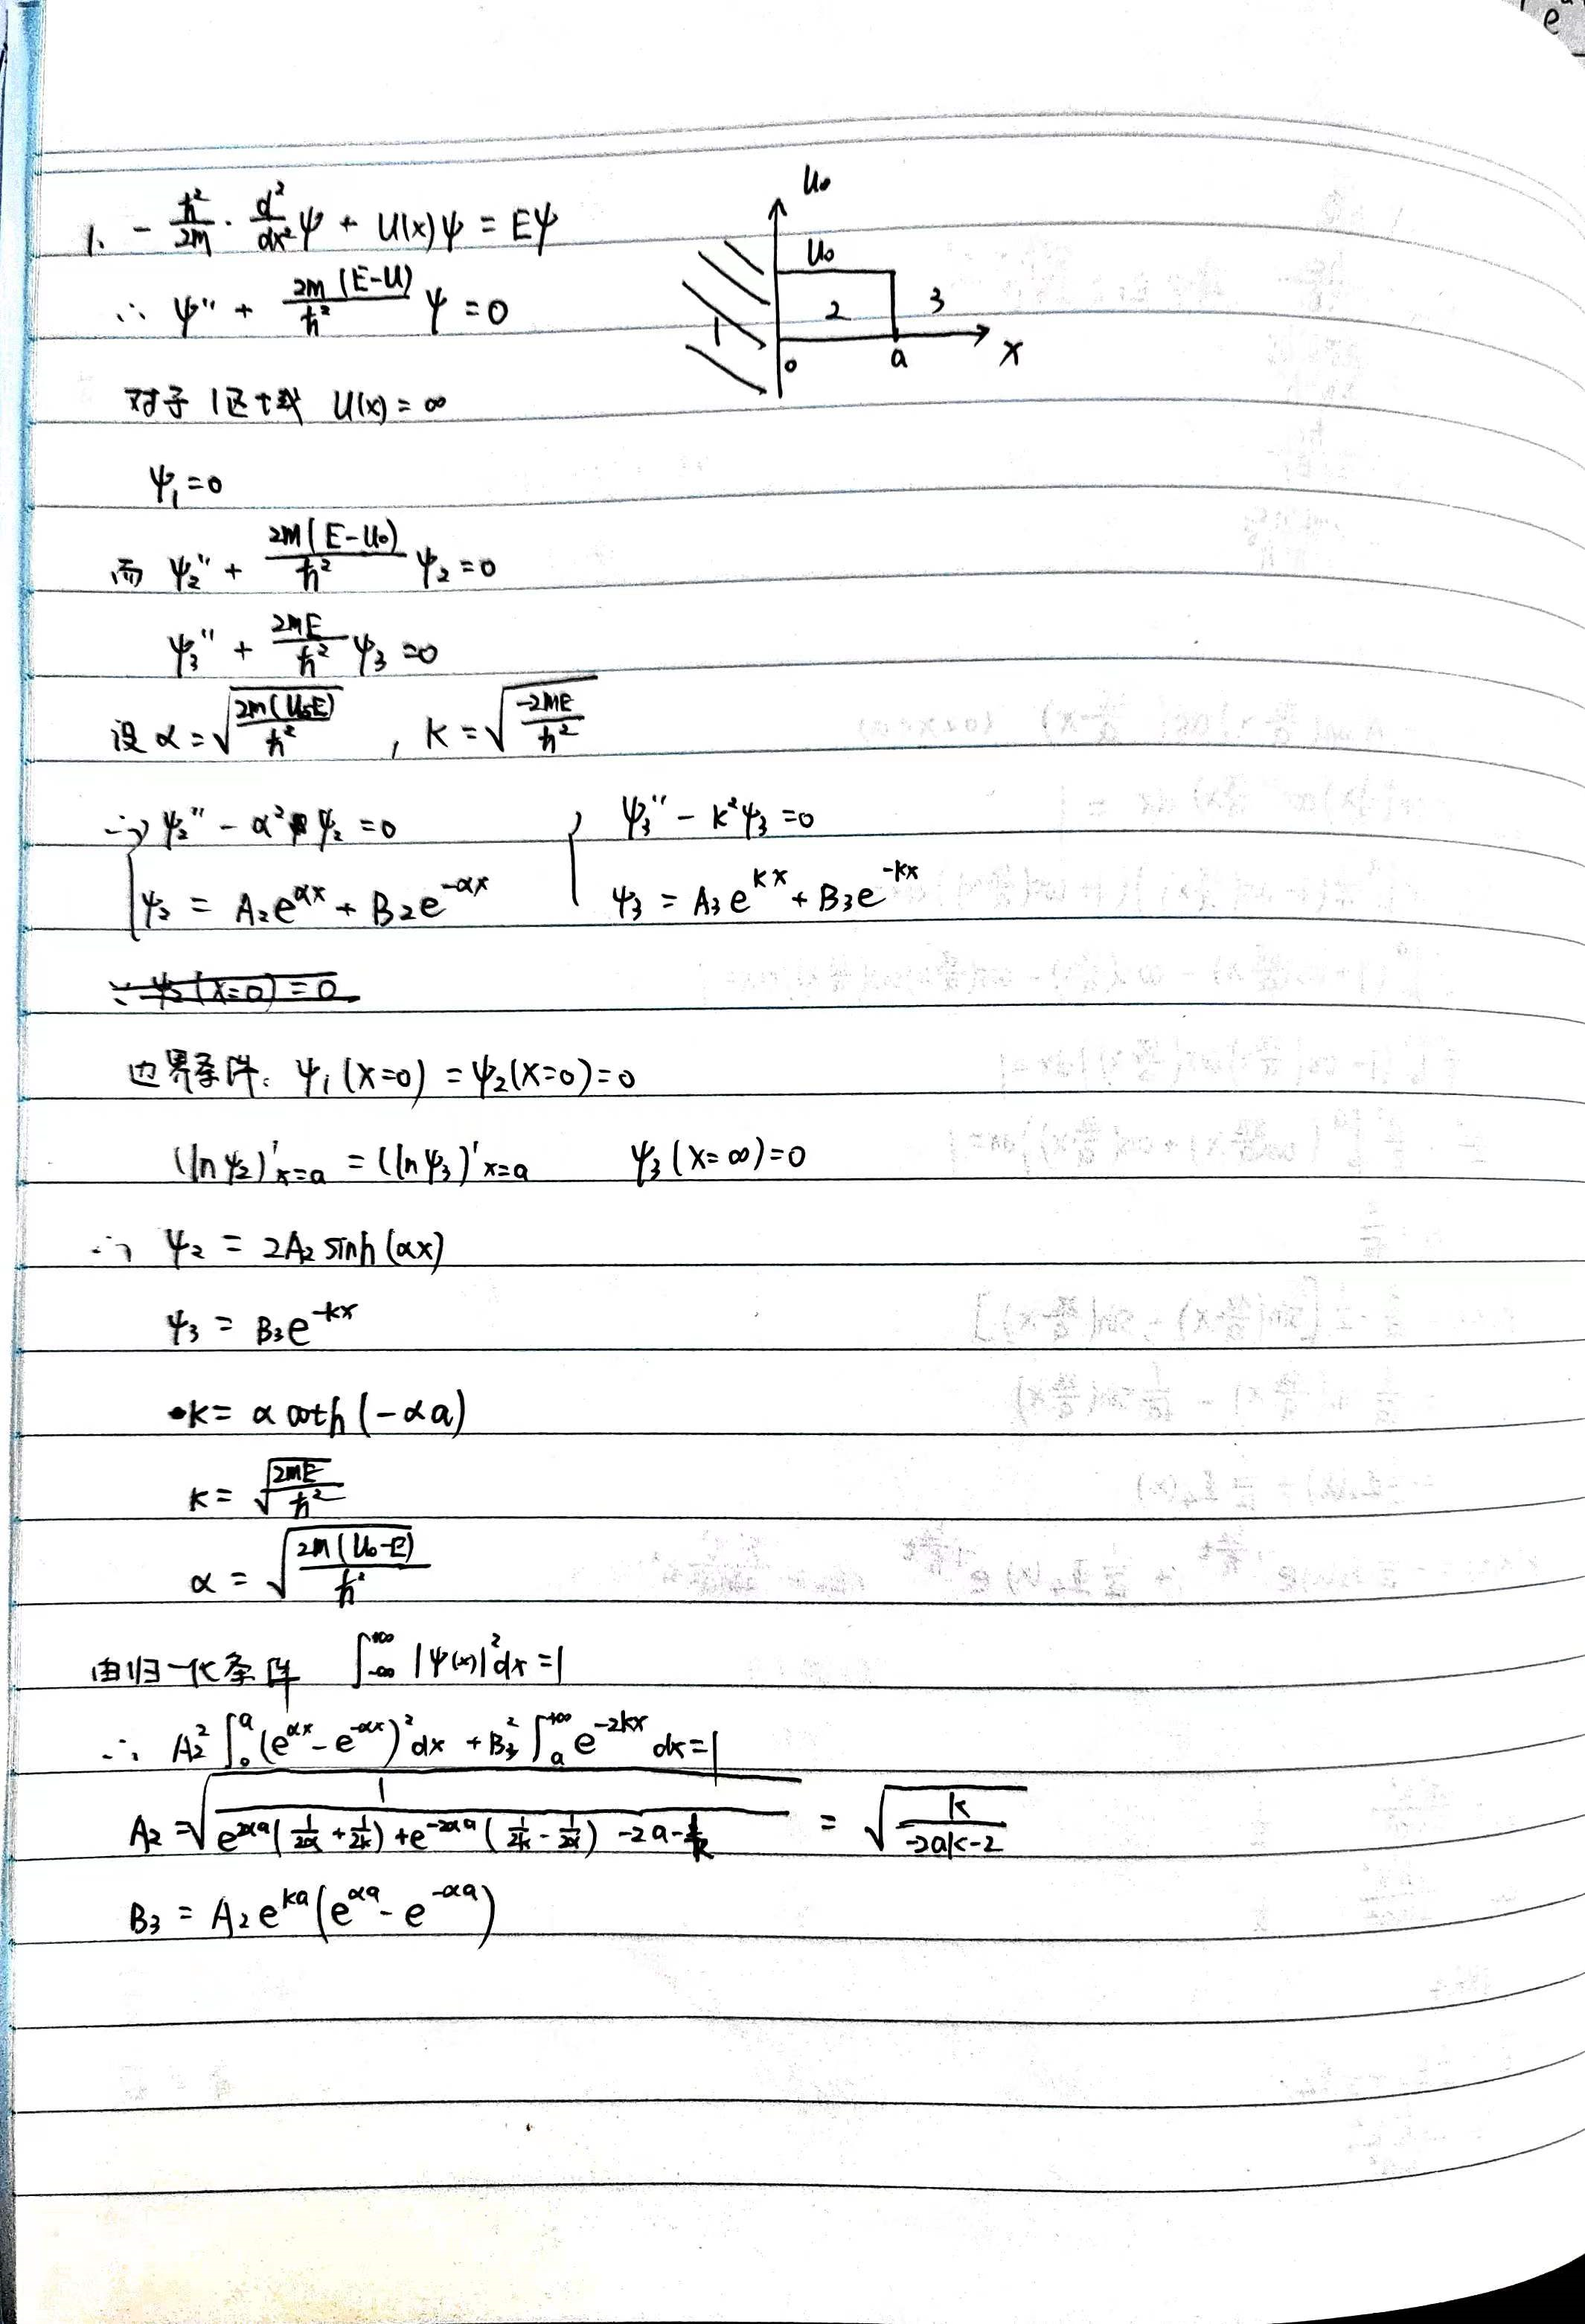 1. -ħ²/2m · d²/dx² ψ + U(x)ψ = Eψ
∴ ψ'' + 2m(E-U)/ħ² ψ = 0
U₀
U₀
1 2 3
0 a x
对于1区域 U(x) = ∞
ψ₁ = 0
而 ψ₂'' + 2m(E-U₀)/ħ² ψ₂ = 0
ψ₃'' + 2mE/ħ² ψ₃ = 0
设 α = √(2m(U₀-E)/ħ²) , k = √(-2mE/ħ²)
∴ ψ₂'' - α²ψ₂ = 0 , ψ₃'' - k²ψ₃ = 0
ψ₂ = A₂e^{αx} + B₂e^{-αx} ψ₃ = A₃e^{kx} + B₃e^{-kx}
∵ ψ₂(x=0) = 0
边界条件: ψ₁(x=0) = ψ₂(x=0) = 0
(lnψ₂)'x=a = (lnψ₃)'x=a ψ₃(x=∞) = 0
∴ ψ₂ = 2A₂ sinh(αx)
ψ₃ = B₃e^{-kx}
k = α coth(-αa)
k = √(2mE/ħ²)
α = √(2m(U₀-E)/ħ²)
由归一化条件 ∫_{-∞}^{+∞} |ψ(x)|²dx = 1
∴ A₂² ∫₀^a (e^{αx} - e^{-αx})²dx + B₃² ∫_a^{+∞} e^{-2kx} dx = 1
A₂ = √(1/(e^{2αa}(1/2α + 1/2k) + e^{-2αa}(1/2k - 1/2α) - 2a - 1/k)) = √(k/(-2ak-2))
B₃ = A₂e^{ka}(e^{αa} - e^{-αa})